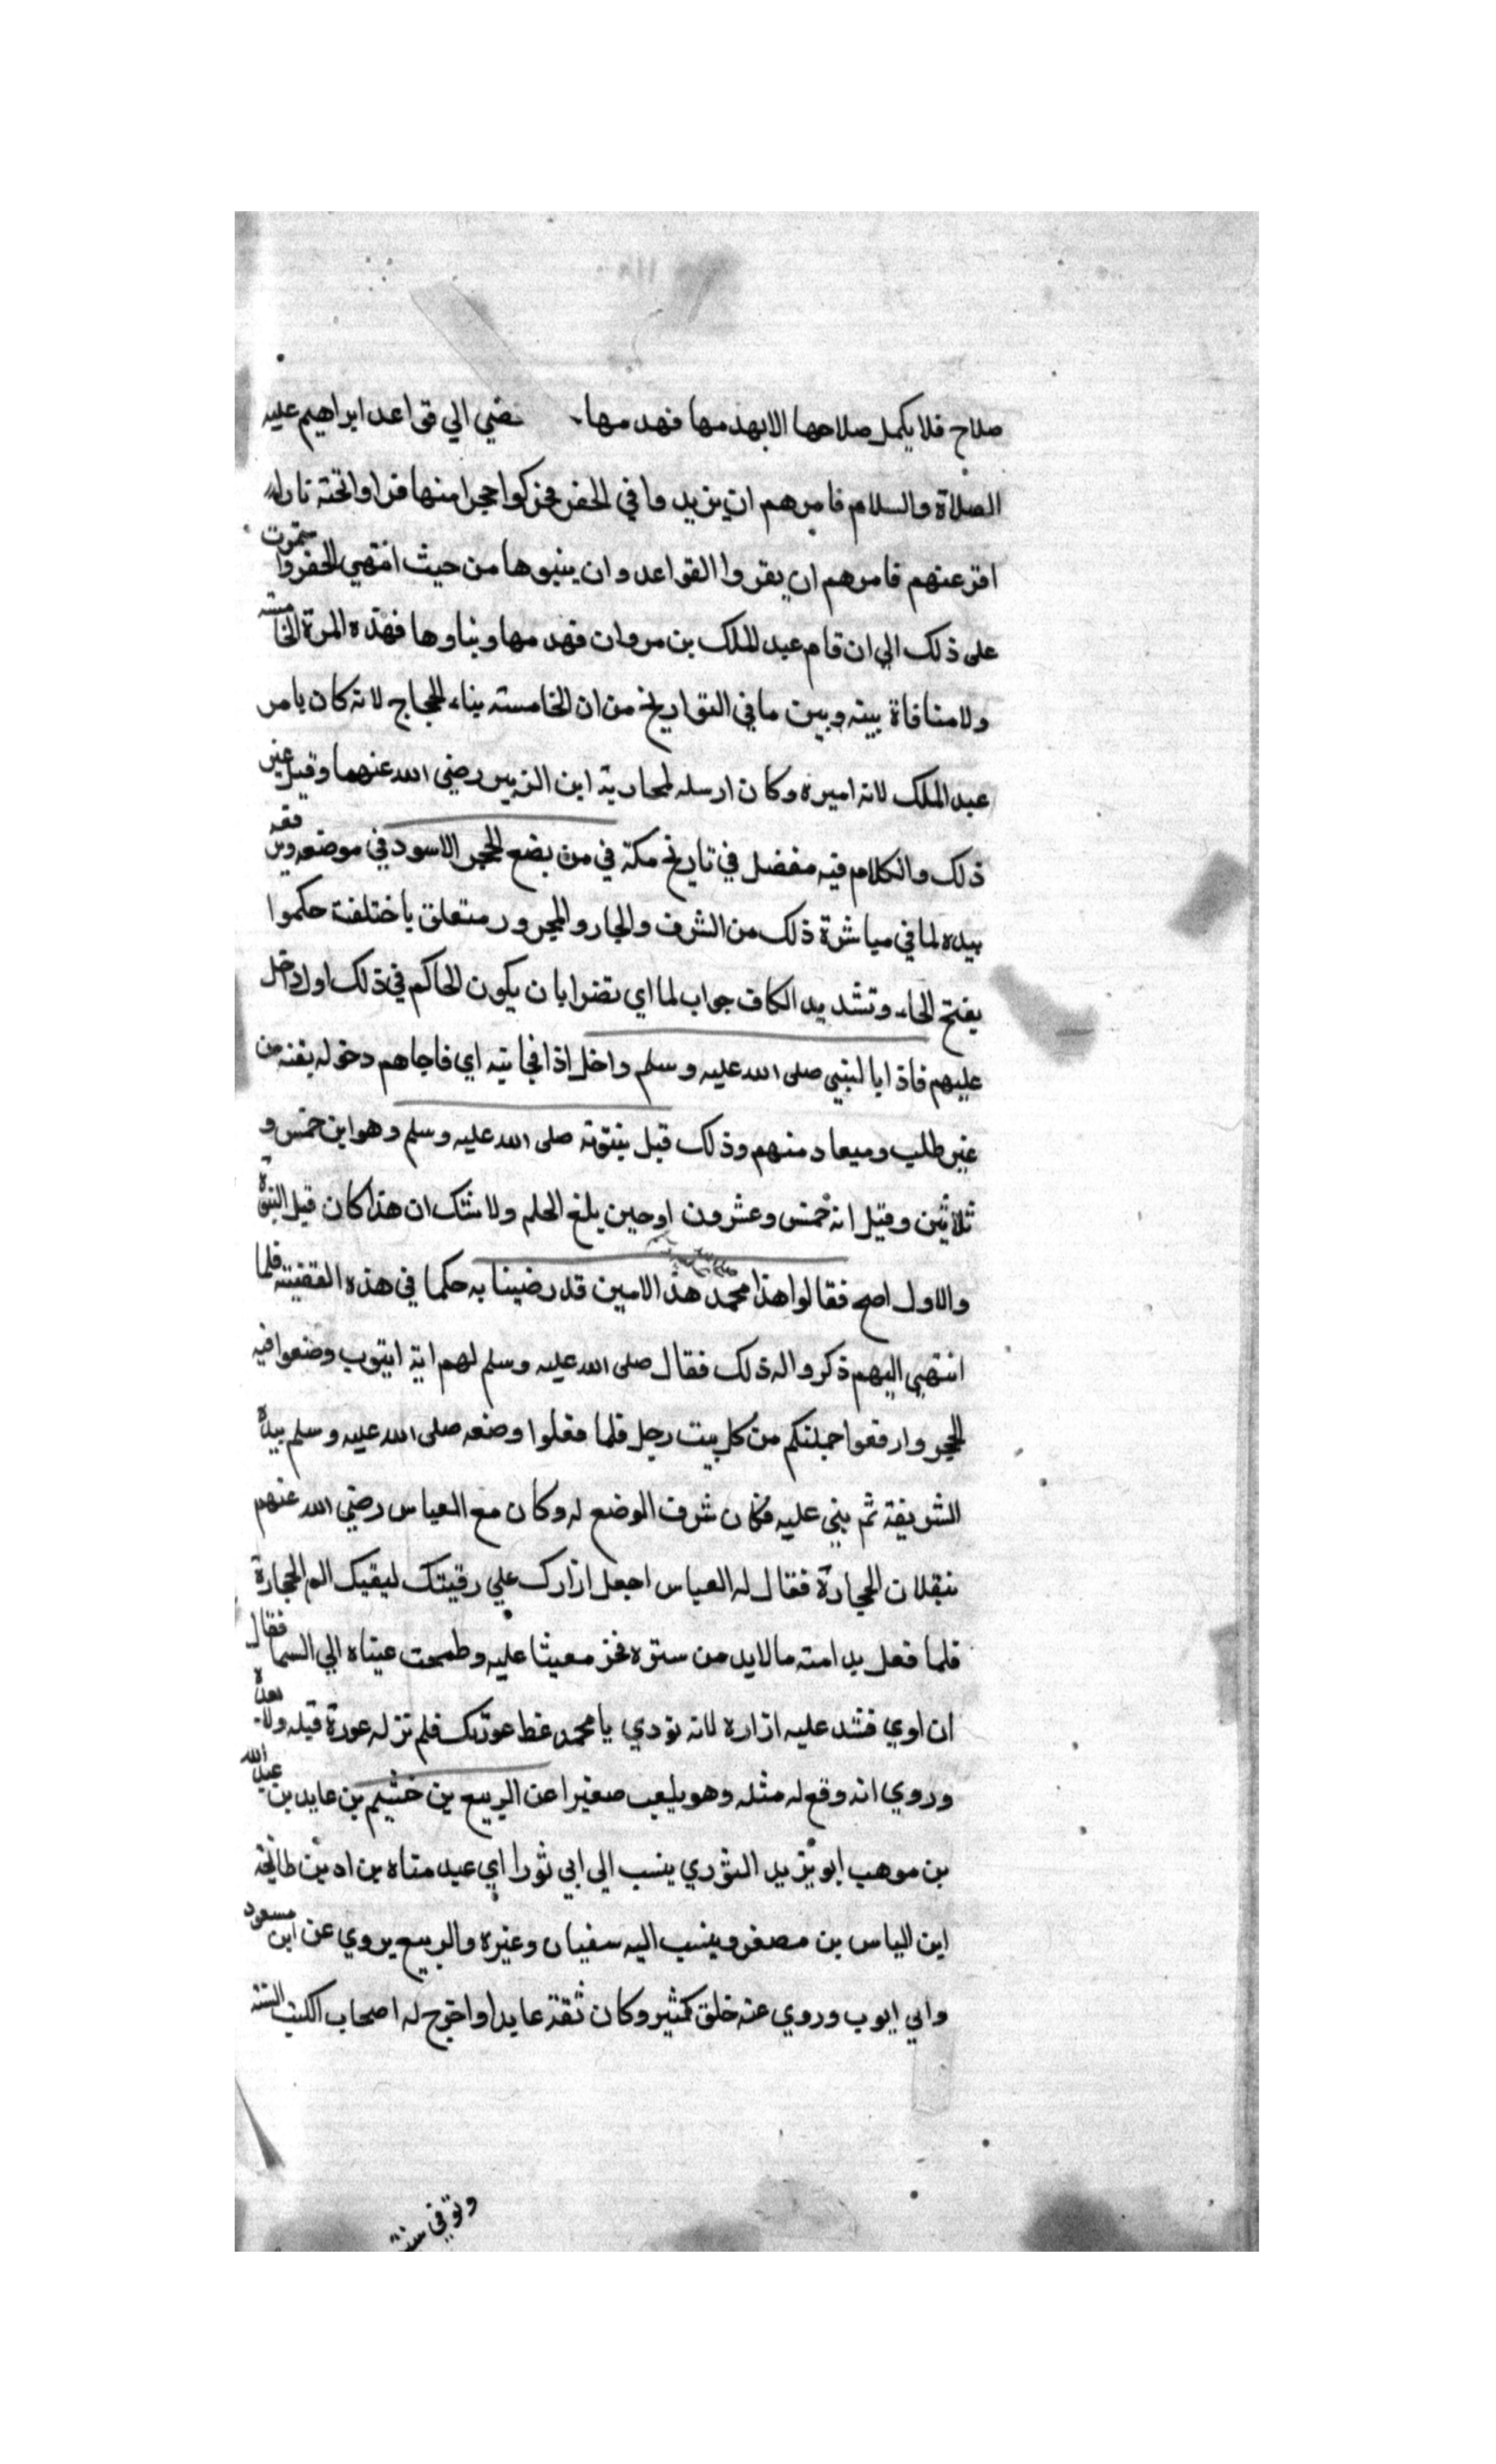 صلاح فلا يكمل صلاحها الا بهدمها فهدمها، ـفضي الي قواعد ابراهيم عليه
الصلاة والسلام فامرهم ان يزيدوا في الحفر فحركوا حجرا منها فراوا تحته نارا
افزعتهم فامرهم ان يقروا القواعد وان يبنوها من حيث انتهي الحفر واستمرت
على ذلك الي ان قام عبد الملك بن مروان فهدمها وبناوها فهذه المرة الخامسته
ولا منافاة بينه وبين ما في التواريخ من ان الخامسته بناء الحجاج لانه كان بامر
عبد الملك لانه اميره وكان ارسله لمحاربة ابن الزبير رضي الله عنهما وقيل غير
ذلك والكلام فيه مفصل في تاريخ مكة في من يضع الحجر الاسود في موضعه ويرفعه
بيده لما في مباشرة ذلك من الشرف والجار والمجرور متعلق باختلفت حكموا
بفتح الحاء وتشديد الكاف جواب لما اي تضوا بان يكون الحاكم في ذلك اول داخل
عليهم فاذا بالنبي صلى الله عليه وسلم داخل اذا فجاتيه اي فاجاهم دخوله بغته من
غير طلب وميعاد منهم وذلك قبل نبوته صلى الله عليه وسلم وهو ابن خمس و
ثلاثين وقيل انه خمس وعشرون او حين بلغ الحلم ولا شك ان هذا كان قبل النبوة
والاول اصح فقالوا هذا محمد هذا الامين قد رضينا به حكما في هذه القضيته فلما
انتهي اليهم ذكروا له ذلك فقال صلى الله عليه وسلم لهم ايته ايتوب وضعوا فيه
الحجر وارفعوا جملتكم من كل بيت رجل فلما فعلوا وضعه صلى الله عليه وسلم بيده
الشريفة ثم بني عليه فكان شرف الوضع له وكان مع العباس رضي الله عنهم
ينقلان الحجارة فقال له العباس اجعل ازارك علي رقبتك ليقيك الم الحجارة
فلما فعل بدا منه مالابد من ستره فخر مغشيا عليه وطمحت عيناه الي السما فقال
ان اوي فشد عليه ازاره لانه نودي يا محمد غط عورتك فلم تر له عورة قبله ولا بعده
وروي انه وقع له مثله وهو يلعب صغيرا عن الربيع بن خشيم بن عايد بن عبد الله
بن موهب ابو يزيد الثوري ينسب الي ابي ثور اي عبد مناه بن اد بن طابخة
ابن الياس بن مضر وينسب اليه سفيان وغيره والربيع يروي عن ابن مسعود
وابي ايوب وروي عنه خلق كثير وكان ثقة عابدا واخرج له اصحاب الكتب الستة
وتوفي سنة